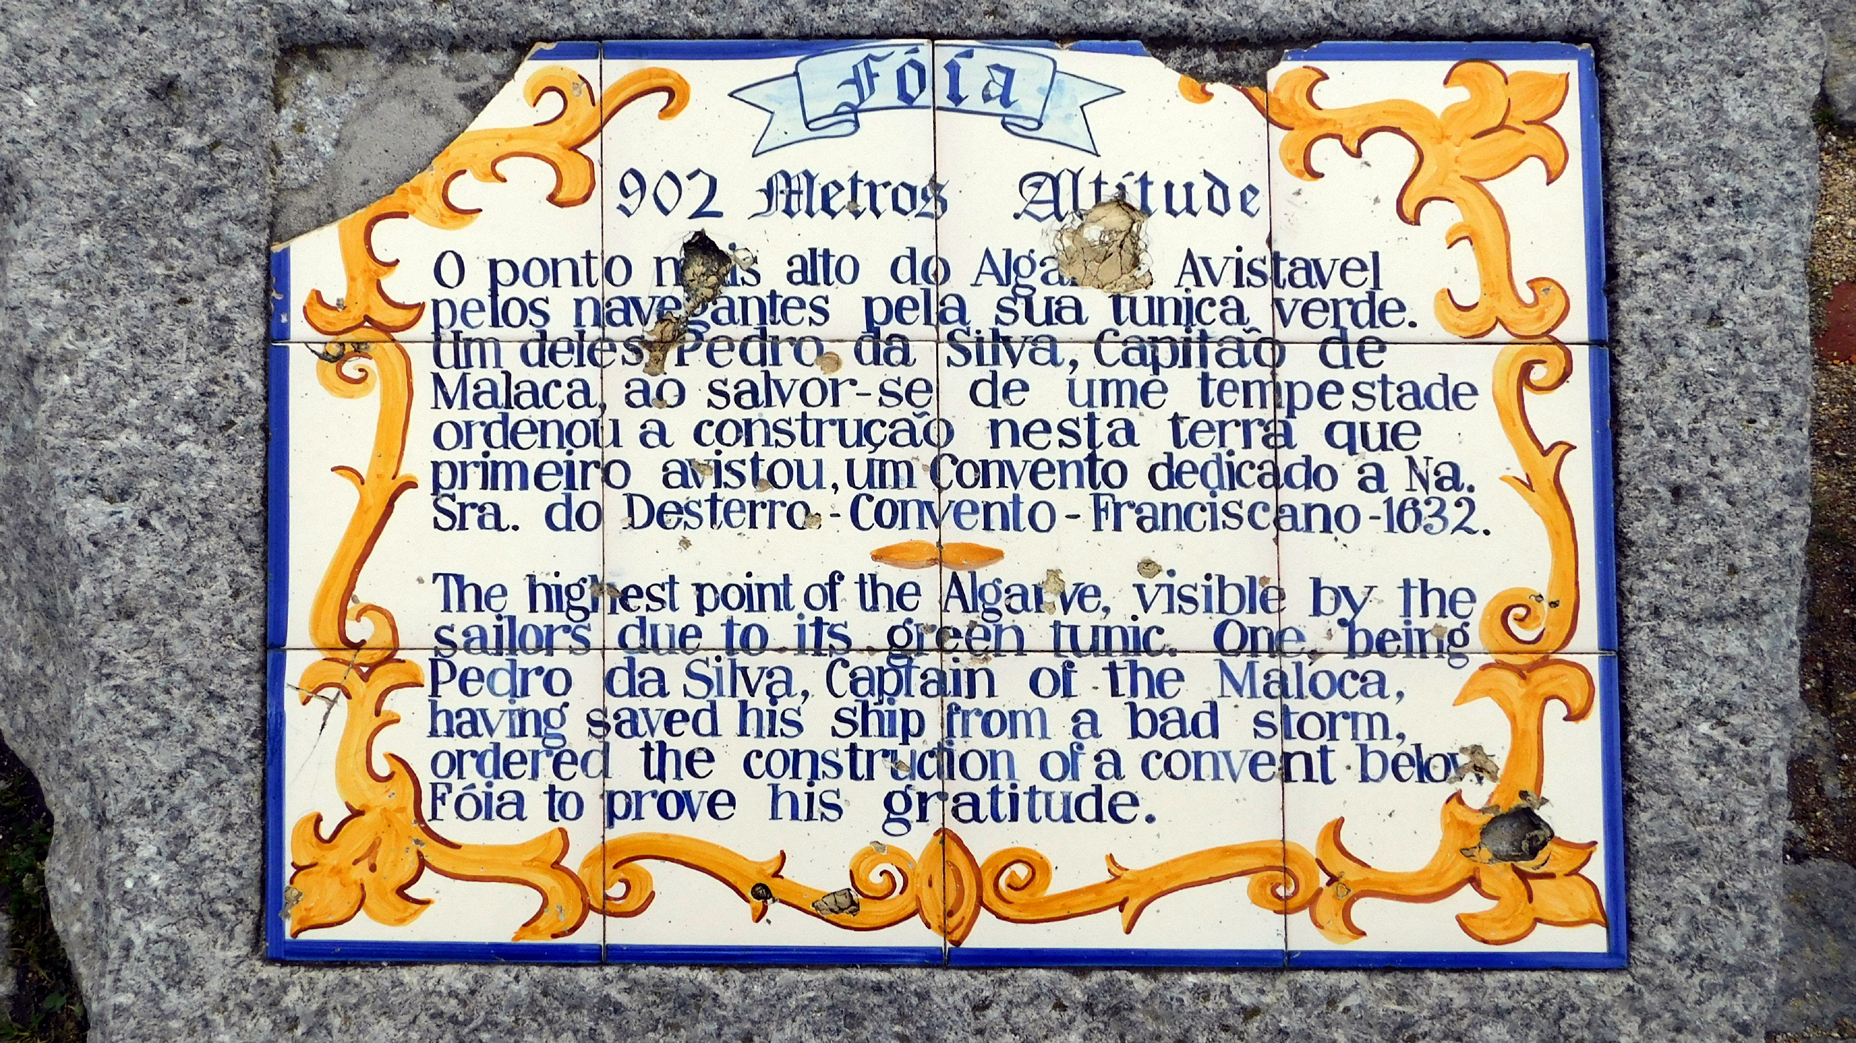 Fóia
902 Metros Altitude
O ponto mais alto do Algarve Avistavel
pelos navegantes pela sua tunica verde.
Um deles Pedro da Silva, Capitão de
Malaca, ao salvor-se de ume tempestade
ordenou a construção nesta terra que
primeiro avistou, um Convento dedicado a Na.
Sra. do Desterro - Convento - Franciscano - 1632.
The highest point of the Algarve, visible by the
sailors due to its green tunic. One, being
Pedro da Silva, Captain of the Maloca,
having saved his ship from a bad storm,
ordered the construction of a convent below
Fóia to prove his gratitude.